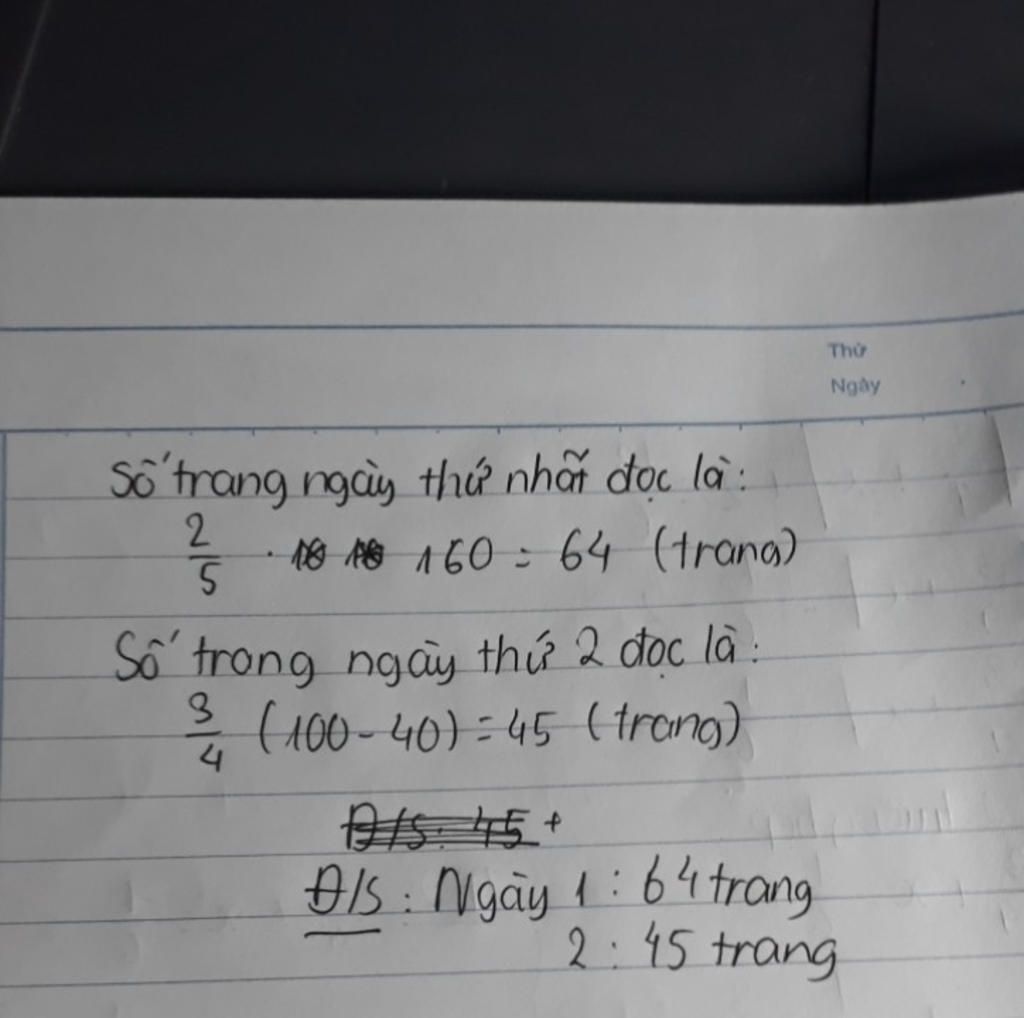 Thứ
Ngày
Số trang ngày thứ nhất đọc là:
2/5 . 160 = 64 (trang)
Số trong ngày thứ 2 đọc là:
3/4 (100 - 40) = 45 (trang)
Đ/S: 45 +
Đ/S: Ngày 1 : 64 trang
2 : 45 trang